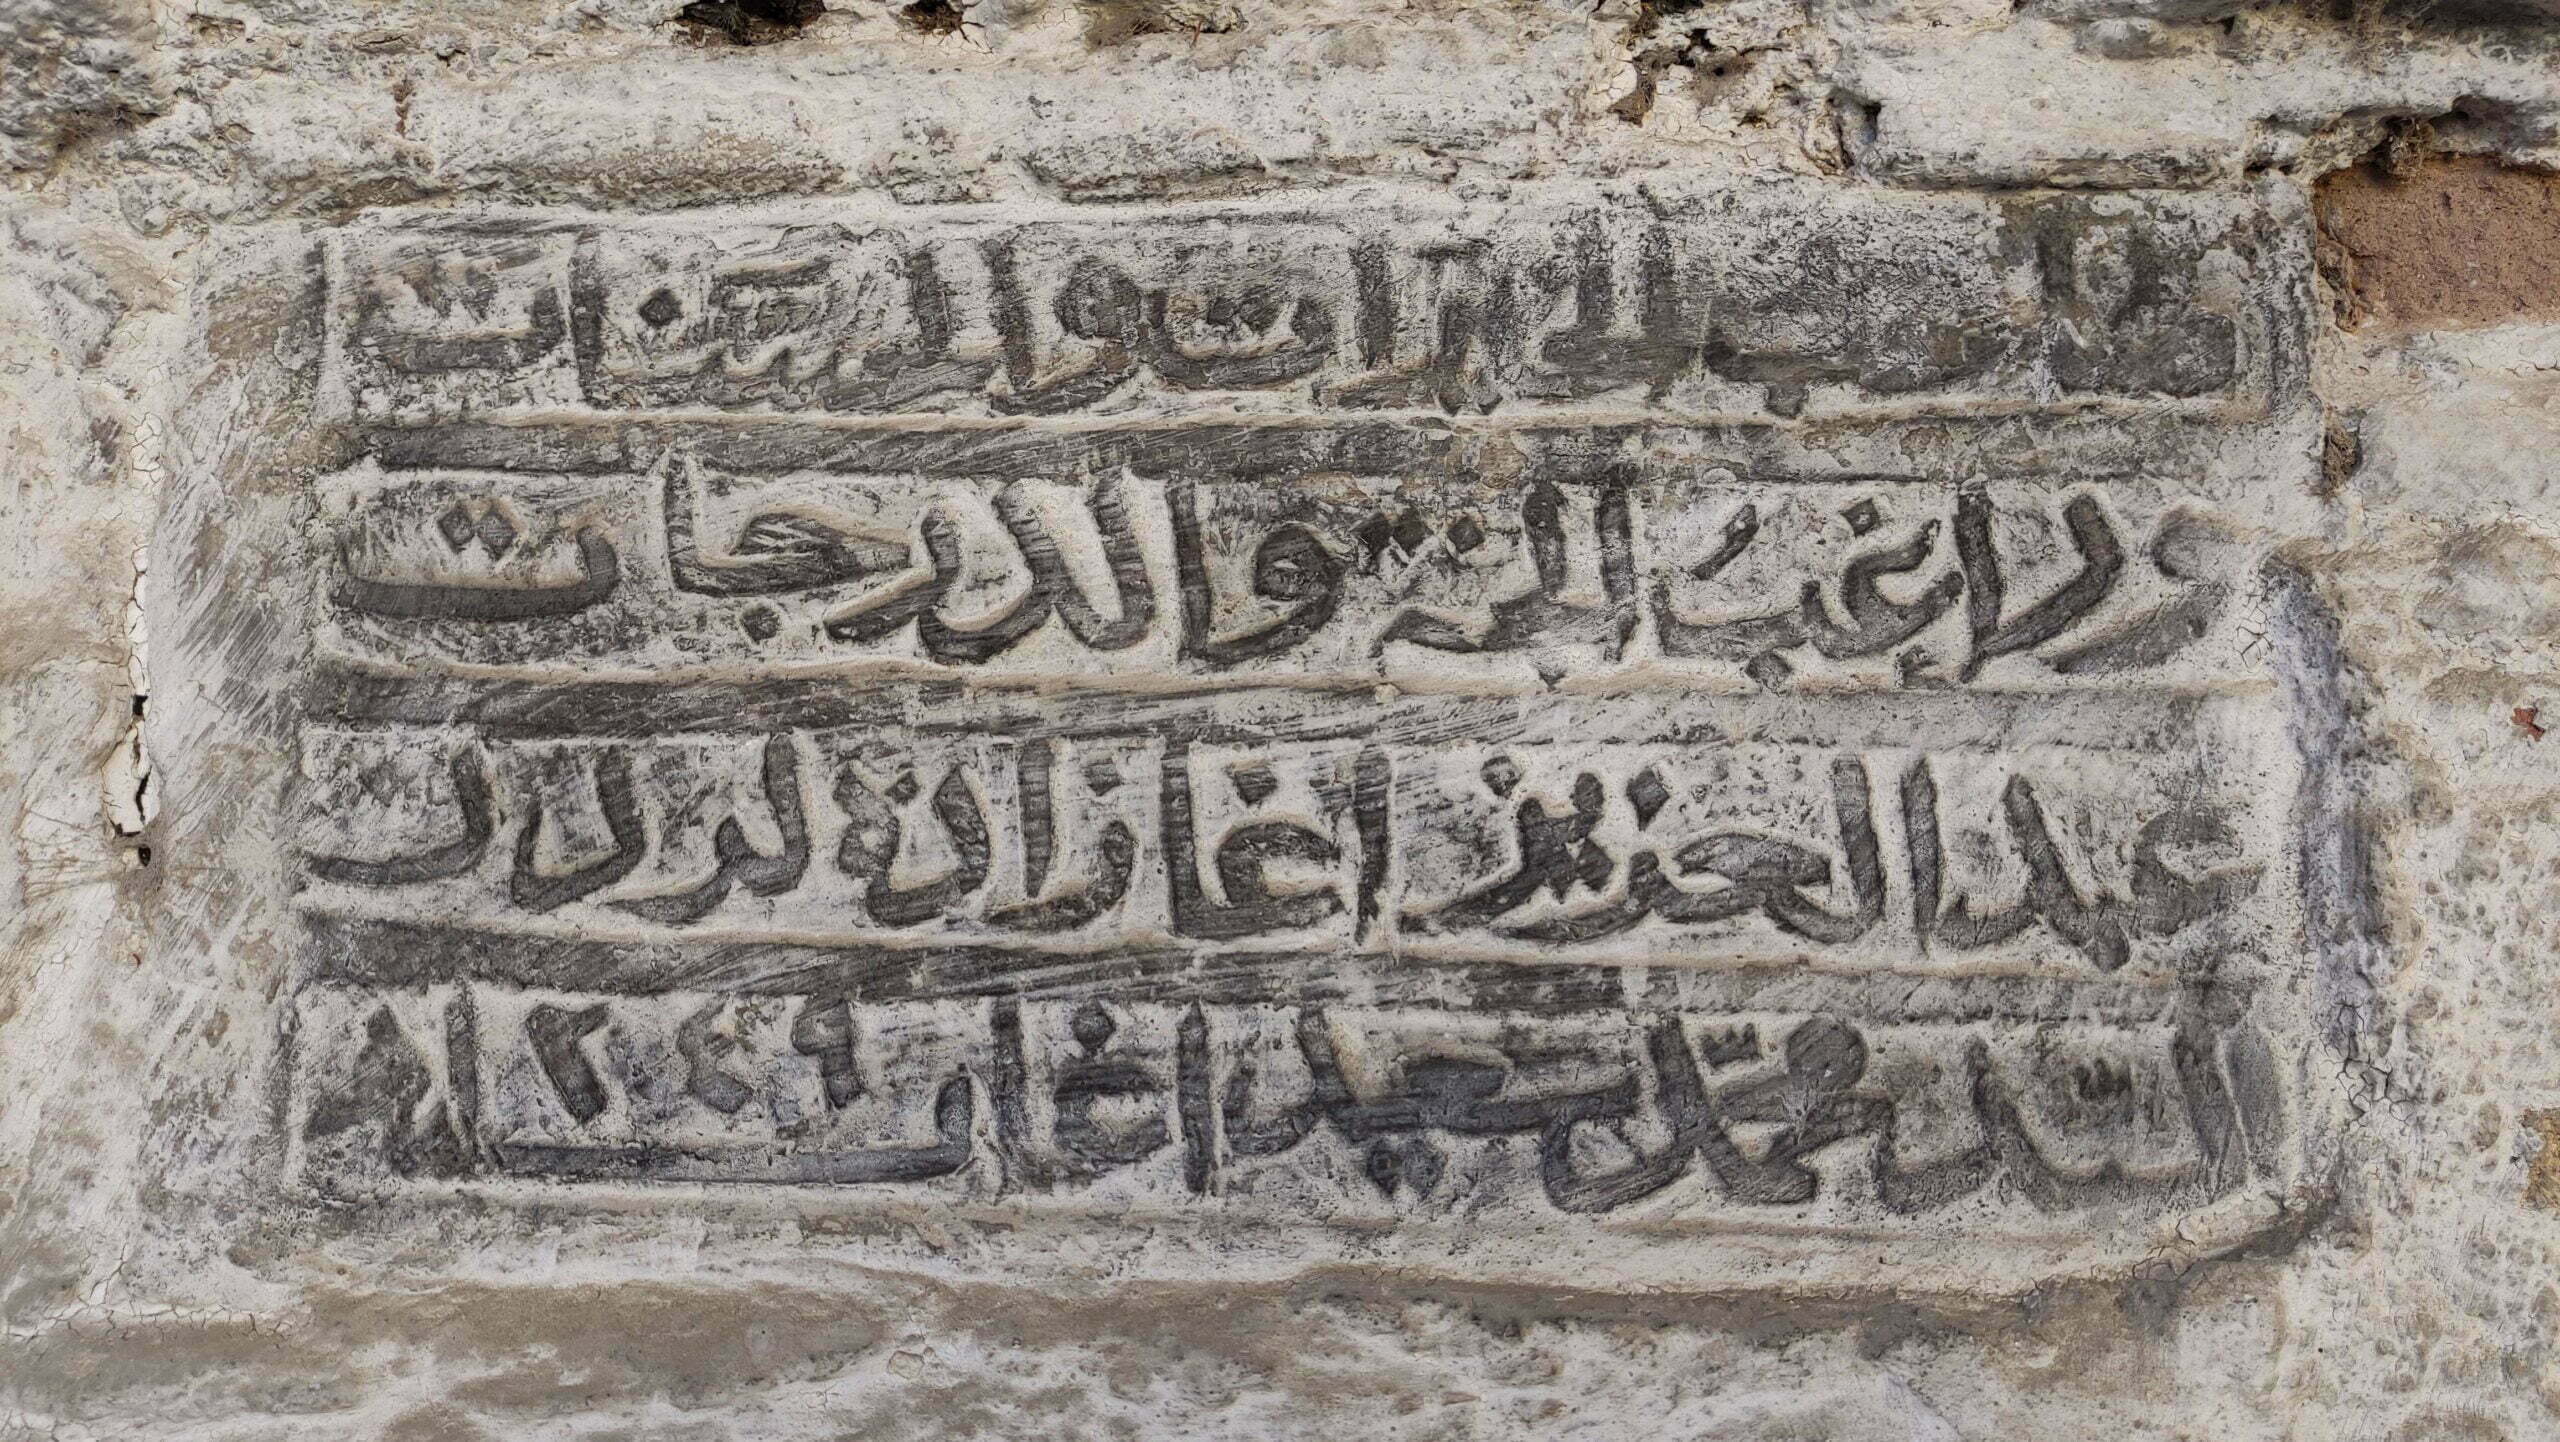 صاحب الخيرات والحسنات
وراغب الجنة والدرجات
عبد العزيز اغا زاده
السيد محمد سعيد اغا ١٢٤٤